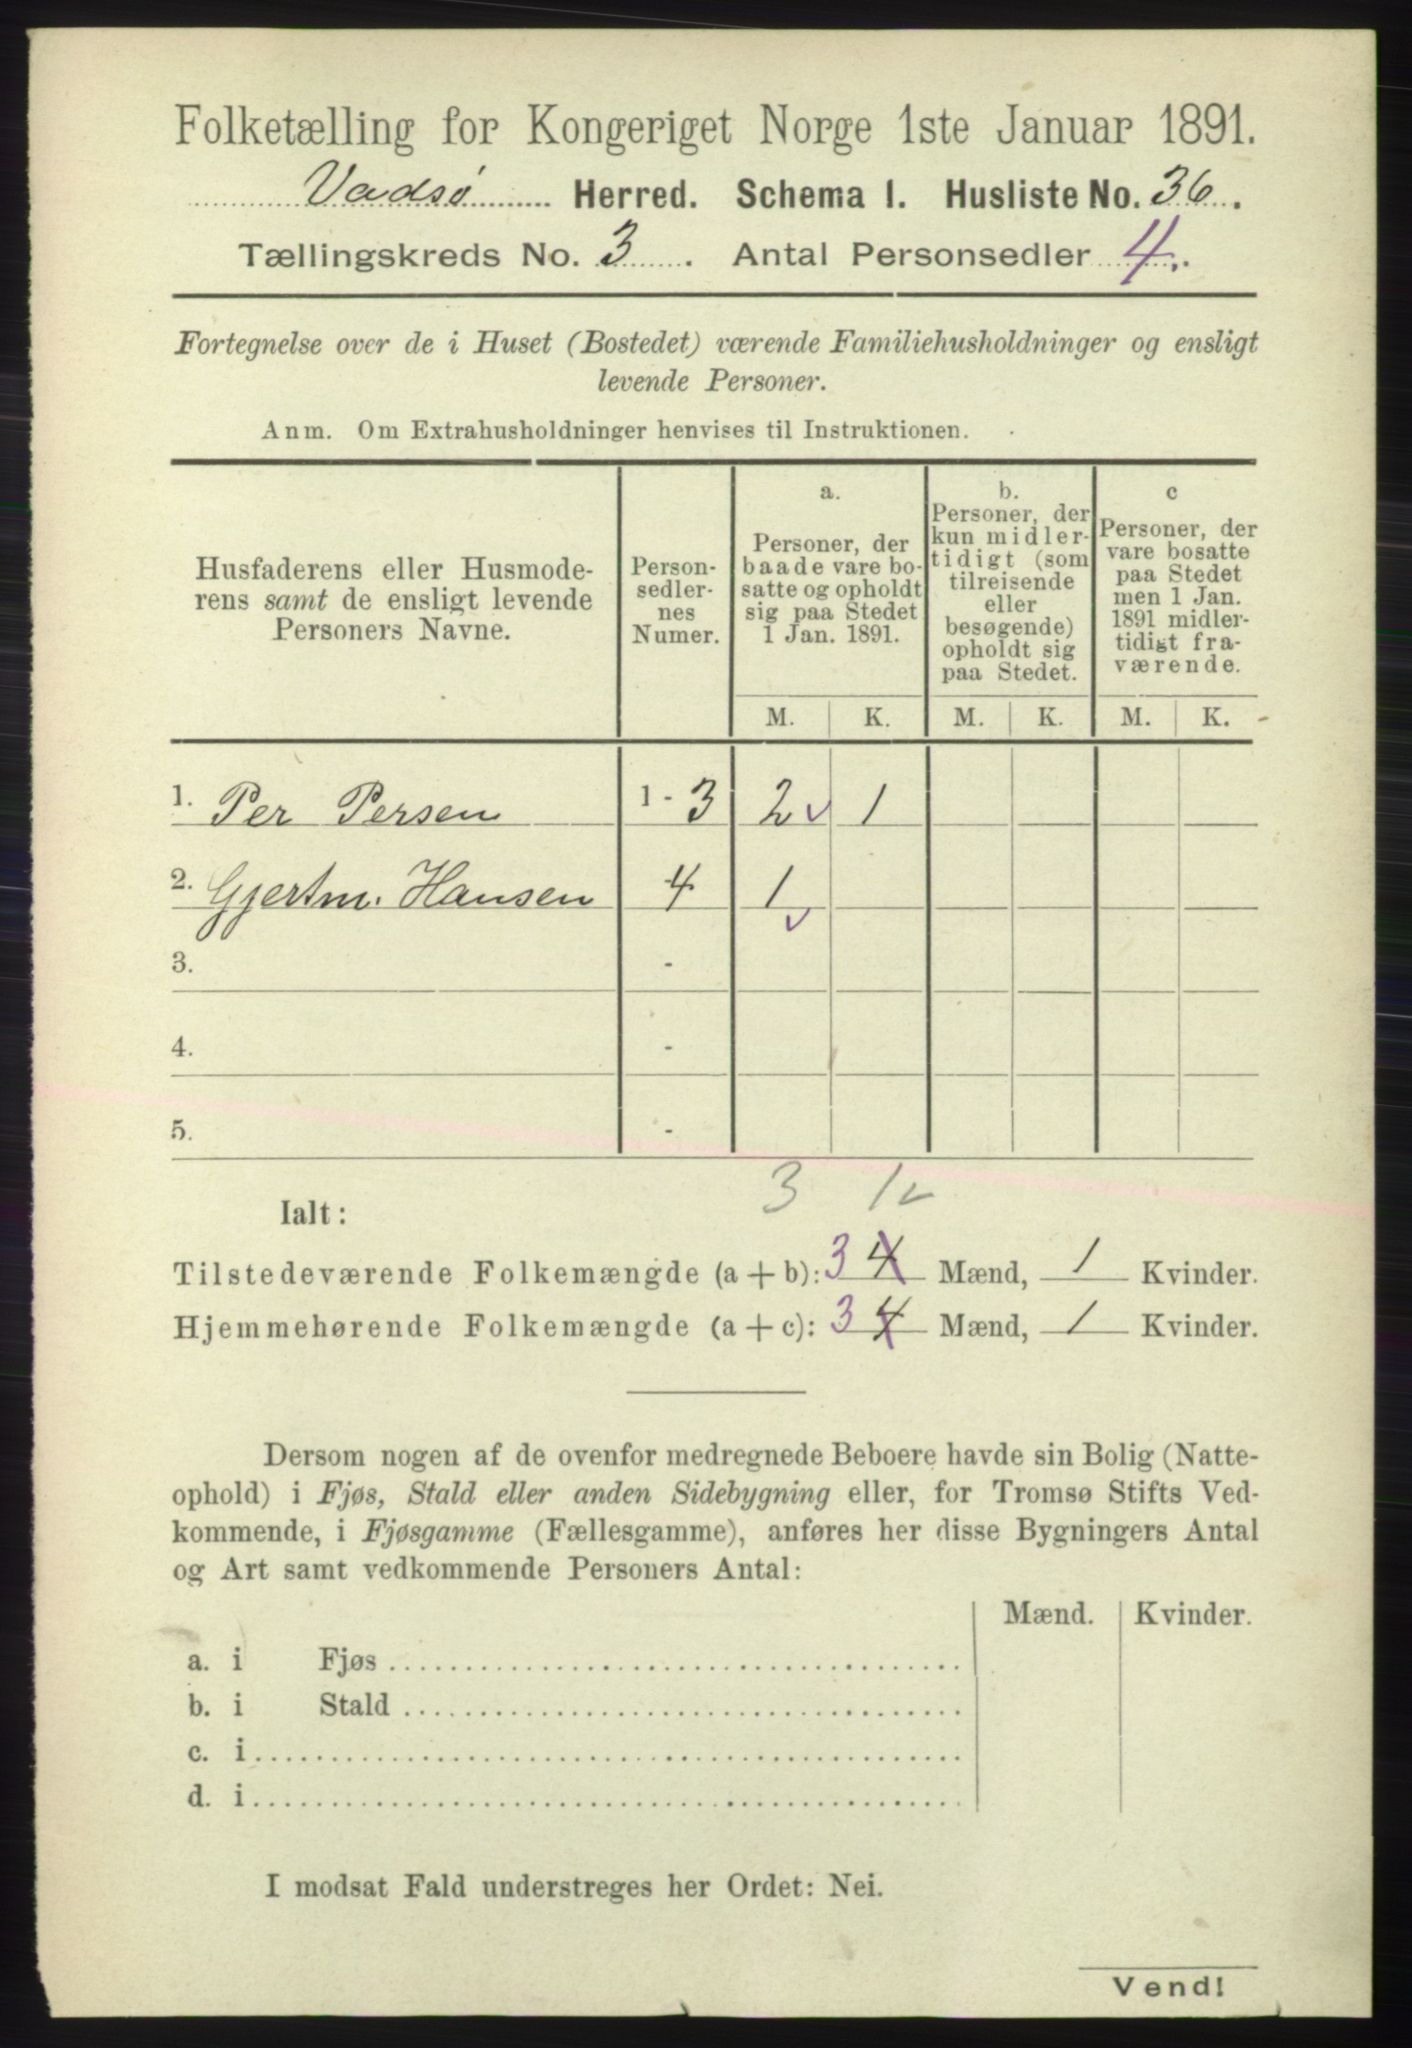 Folketælling for Kongeriget Norge 1ste Januar 1891.
Vadsø Herred. Schema I. Husliste No. 36.
Tællingskreds No. 3. Antal Personsedler 4.
Fortegnelse over de i Huset (Bostedet) værende Familiehusholdninger og ensligt
levende Personer.
Anm. Om Extrahusholdninger henvises til Instruktionen.
Husfaderens eller Husmode-
rens samt de ensligt levende
Personers Navne.
Person-
sedler-
nes
Numer.
a.
Personer, der
baade vare bo-
satte og opholdt
sig paa Stedet
1 Jan. 1891.
b.
Personer, der
kun midler-
tidigt (som
tilreisende
eller
besøgende)
opholdt sig
paa Stedet.
c
Personer, der
vare bosatte
paa Stedet
men 1 Jan.
1891 midler-
tidigt fra-
værende.
M. K. M. K. M. K.
1. Per Persen 1 - 3 2 1
2. Gjertm. Hansen 4 1
3. -
4. -
5. -
3 1
Ialt:
Tilstedeværende Folkemængde (a + b): 3 4 Mænd, 1 Kvinder.
Hjemmehørende Folkemængde (a + c): 3 4 Mænd, 1 Kvinder.
Dersom nogen af de ovenfor medregnede Beboere havde sin Bolig (Natte-
ophold) i Fjøs, Stald eller anden Sidebygning eller, for Tromsø Stifts Ved-
kommende, i Fjøsgamme (Fællesgamme), anføres her disse Bygningers Antal
og Art samt vedkommende Personers Antal:
Mænd. Kvinder.
a. i Fjøs
b. i Stald
c. i
d. i
I modsat Fald understreges her Ordet: Nei.
Vend!